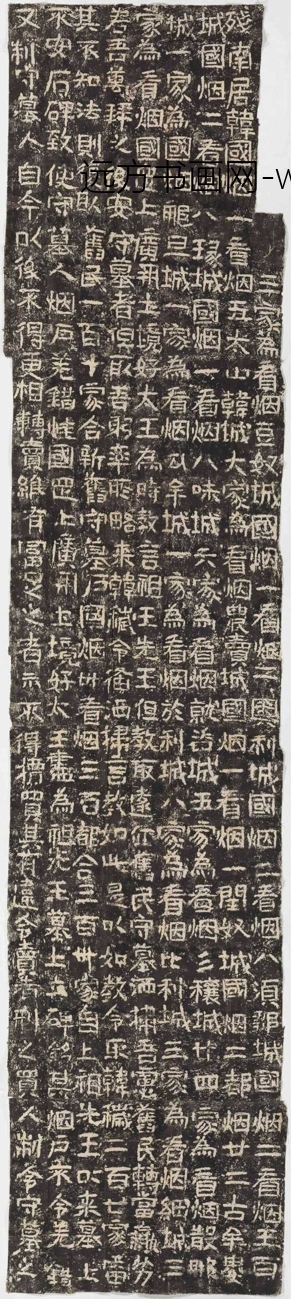 三家為看烟豆奴城國烟一看烟二奧利城國烟二看烟八須鄒城國烟二看烟五百
殘南居韓國烟一看烟五太山韓城六家為看烟農賣城國烟一看烟一閏奴城國烟二都烟廿二古牟婁
城國烟二看烟八瑑城國烟一看烟八味城六家為看烟就咨城五家為看烟彡穰城廿四家為看烟散那
城一家為國烟那旦城一家為看烟勾牟城一家為看烟於利城八家為看烟比利城三家為看烟細城三
家為看烟國岡上廣開土境好太王為時教言祖王先王但教取遠近舊民守墓洒掃吾慮舊民轉當羸劣
若吾萬年之後安守墓者但取吾躬率所略來韓穢令備洒掃言教如此是以如教令取韓穢二百廿家慮
其不知法則取舊民一百十家合新舊守墓戶國烟卅看烟三百都合三百卅家自上祖先王以來墓上
不安石碑致使守墓人烟戶差錯惟國罡上廣開土境好太王盡為祖先王墓上立碑銘其烟戶不令差錯
又制守墓人自今以後不得更相轉賣雖有富足之者亦不得擅買其有違令賣者刑之買人制令守墓之
远方书画网-w